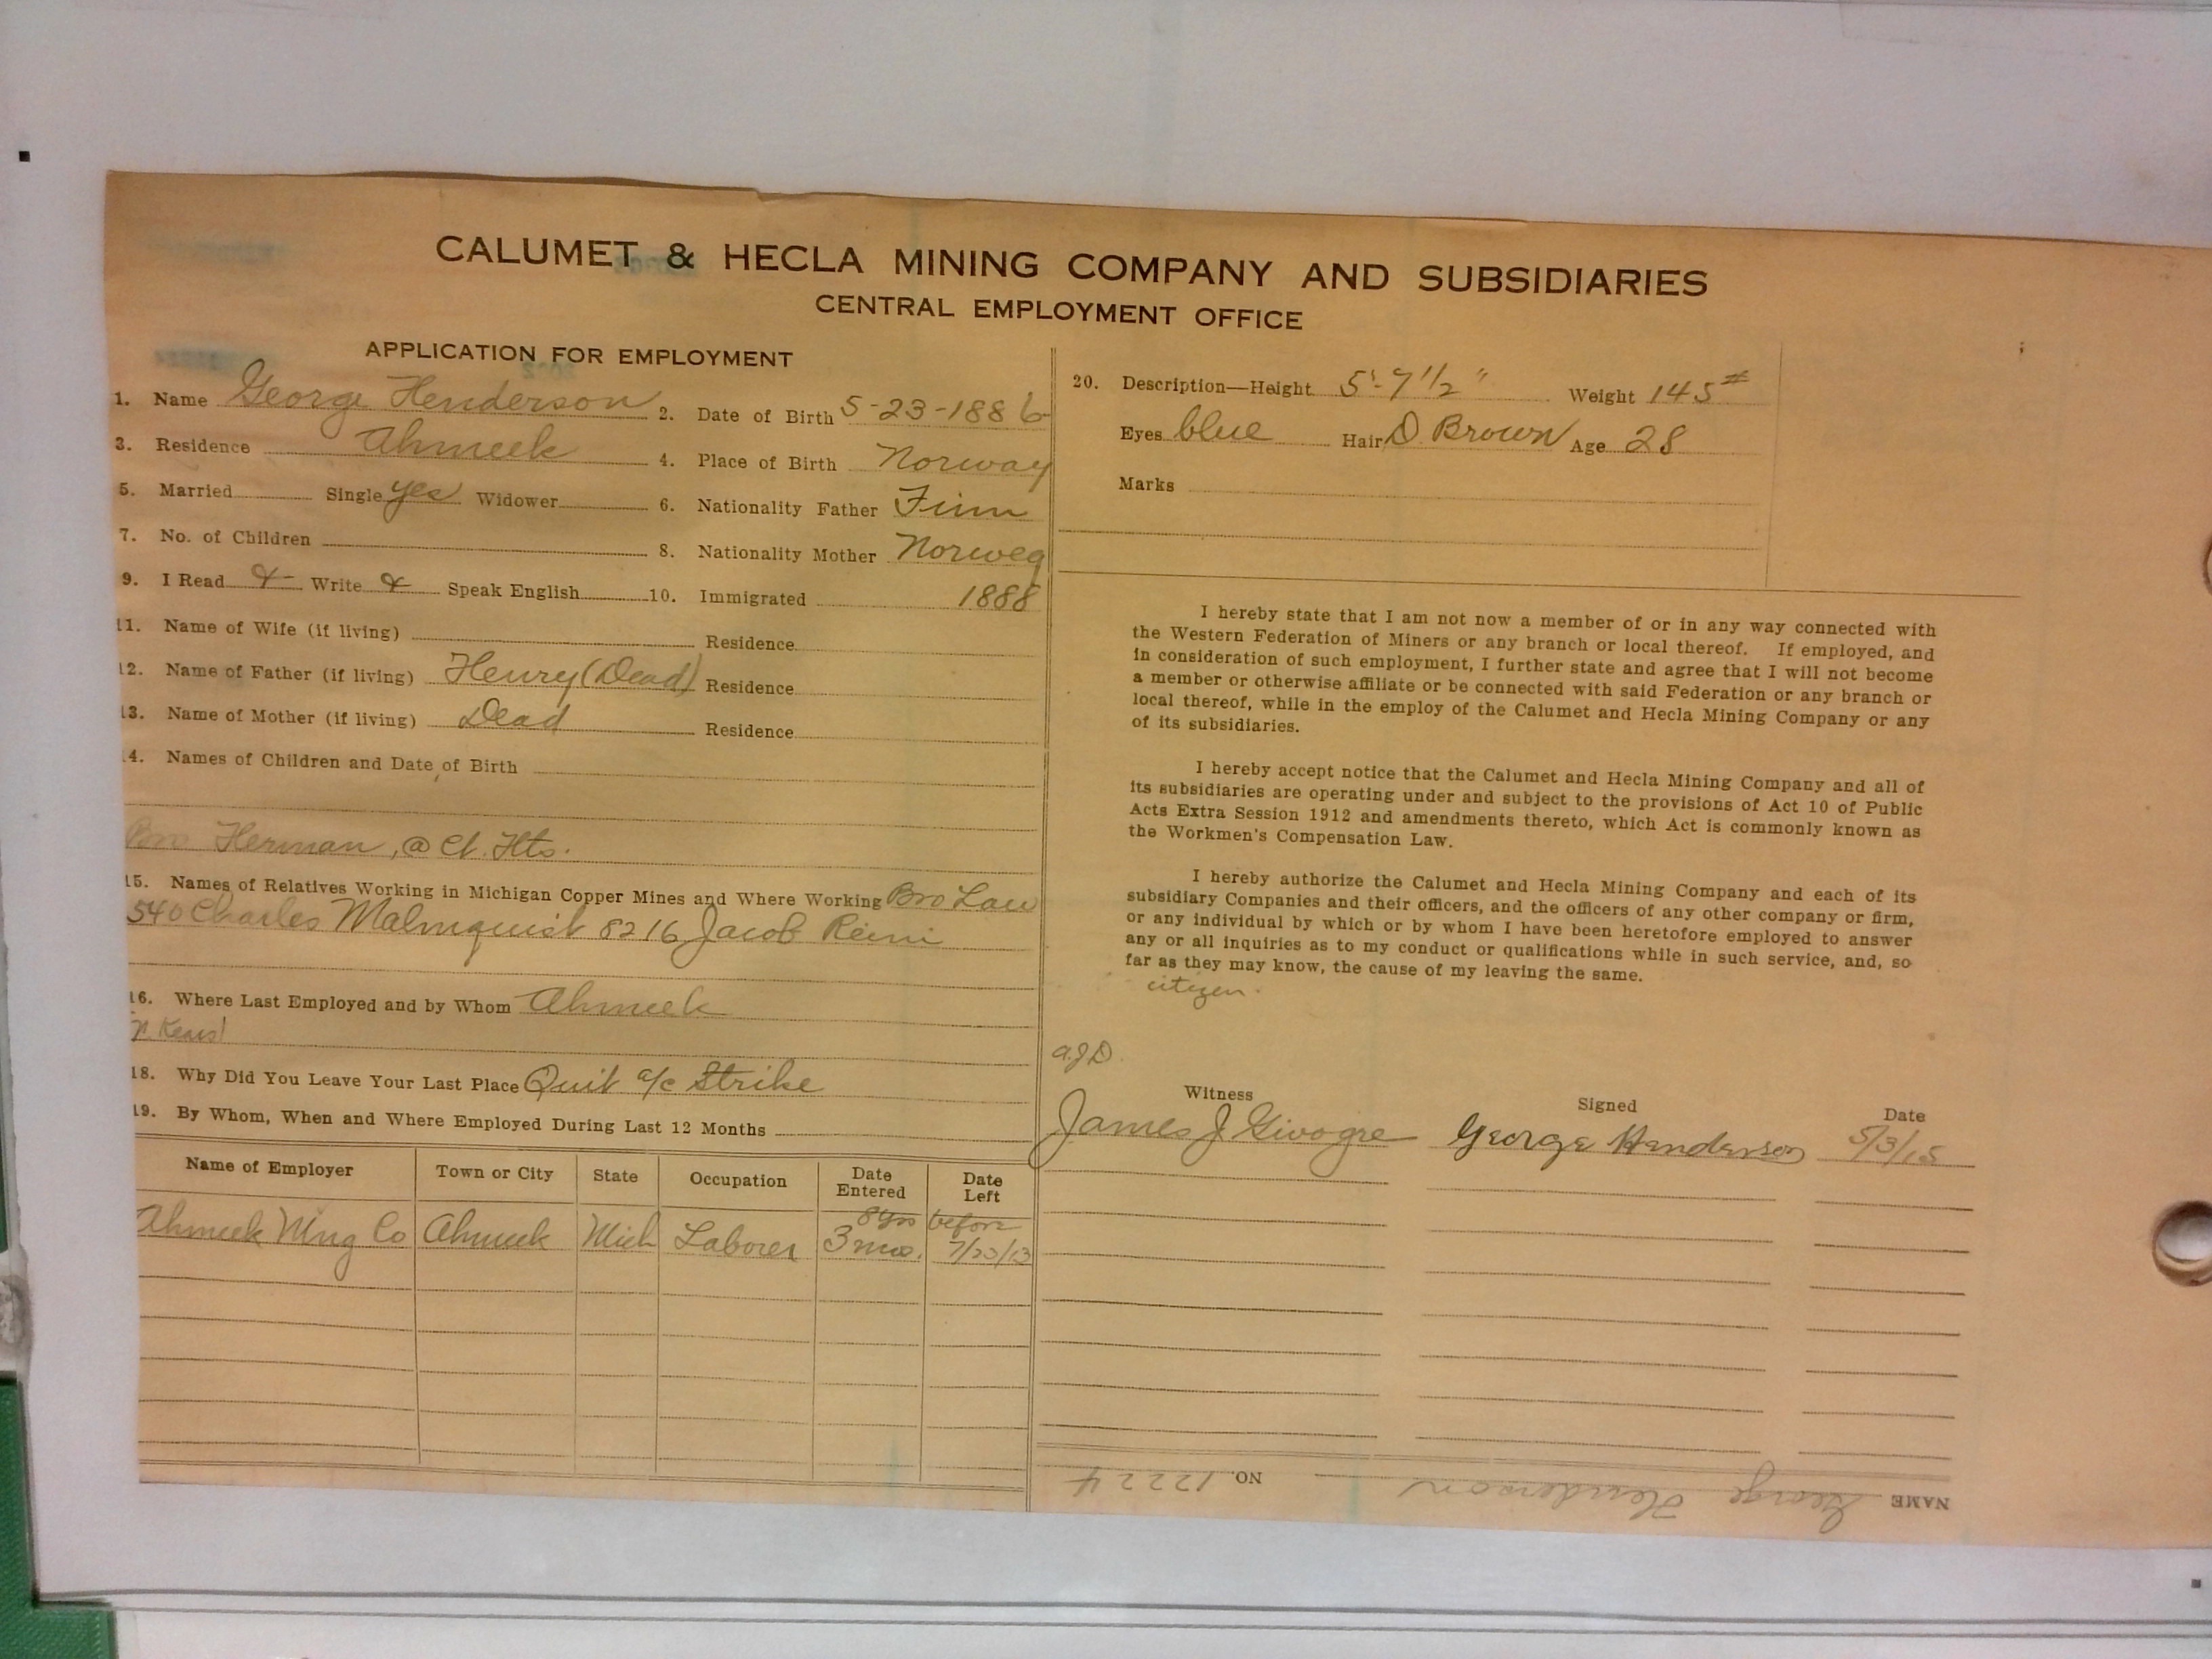 CALUMET & HECLA MINING COMPANY AND SUBSIDIARIES
CENTRAL EMPLOYMENT OFFICE
APPLICATION FOR EMPLOYMENT
1. Name George Henderson 2. Date of Birth 5-23-1886
3. Residence Ahmeek 4. Place of Birth Norway
5. Married Single yes Widower 6. Nationality Father Finn
7. No. of Children 8. Nationality Mother Norweg
9. I Read & Write & Speak English 10. Immigrated 1888
11. Name of Wife (if living) Residence
12. Name of Father (if living) Henry (Dead) Residence
13. Name of Mother (if living) Dead Residence
14. Names of Children and Date of Birth
Bro Herman, @ Ct. Hts.
15. Names of Relatives Working in Michigan Copper Mines and Where Working Bro Law
540 Charles Malmquist 8216 Jacob Reini
16. Where Last Employed and by Whom Ahmeek
N. Kears
18. Why Did You Leave Your Last Place Quit a/c Strike
19. By Whom, When and Where Employed During Last 12 Months
Name of Employer Town or City State Occupation Date Entered Date Left
8 yrs before
Ahmeek Mng Co Ahmeek Mich Laborer 3 mos. 7/23/13
20. Description—Height 5'-7 1/2" Weight 145#
Eyes blue Hair D. Brown Age 28
Marks
I hereby state that I am not now a member of or in any way connected with
the Western Federation of Miners or any branch or local thereof. If employed, and
in consideration of such employment, I further state and agree that I will not become
a member or otherwise affiliate or be connected with said Federation or any branch or
local thereof, while in the employ of the Calumet and Hecla Mining Company or any
of its subsidiaries.
I hereby accept notice that the Calumet and Hecla Mining Company and all of
its subsidiaries are operating under and subject to the provisions of Act 10 of Public
Acts Extra Session 1912 and amendments thereto, which Act is commonly known as
the Workmen's Compensation Law.
I hereby authorize the Calumet and Hecla Mining Company and each of its
subsidiary Companies and their officers, and the officers of any other company or firm,
or any individual by which or by whom I have been heretofore employed to answer
any or all inquiries as to my conduct or qualifications while in such service, and, so
far as they may know, the cause of my leaving the same.
citizen.
a.J.D.
Witness Signed Date
James J Givogre George Henderson 5/3/15
NAME George Henderson NO. 12224